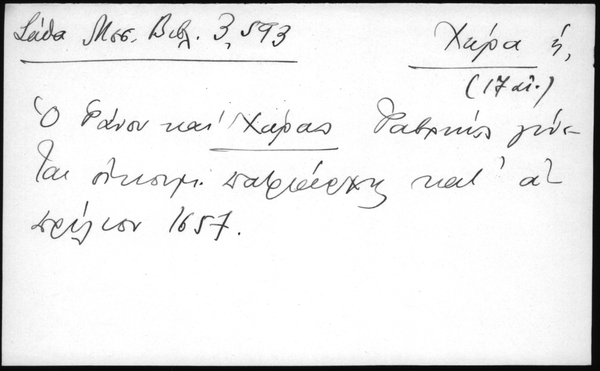 Σάθα Μεσ. Βιβλ. 3, 593
Χώρα ἡ,
(17 αἰ.)
Ὁ Γάνου καὶ Χώρας Γαβριὴλ γίνε-
ται οἰκουμ. πατριάρχης κατ' ἀ-
πρίλιον 1657.